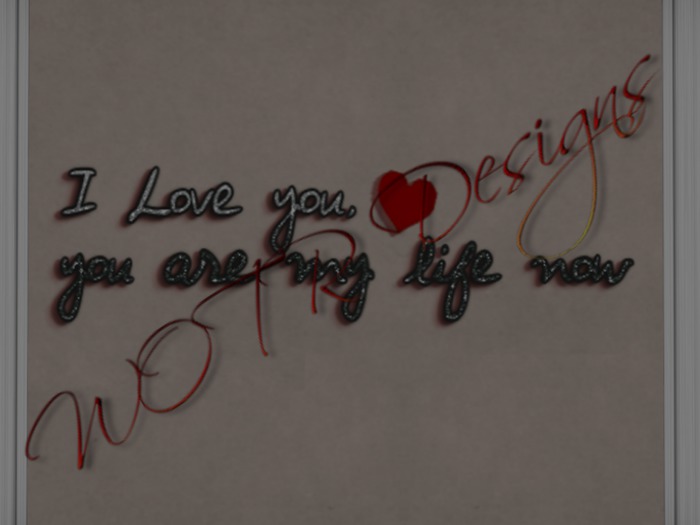 I Love you,
you are my life now
Designs